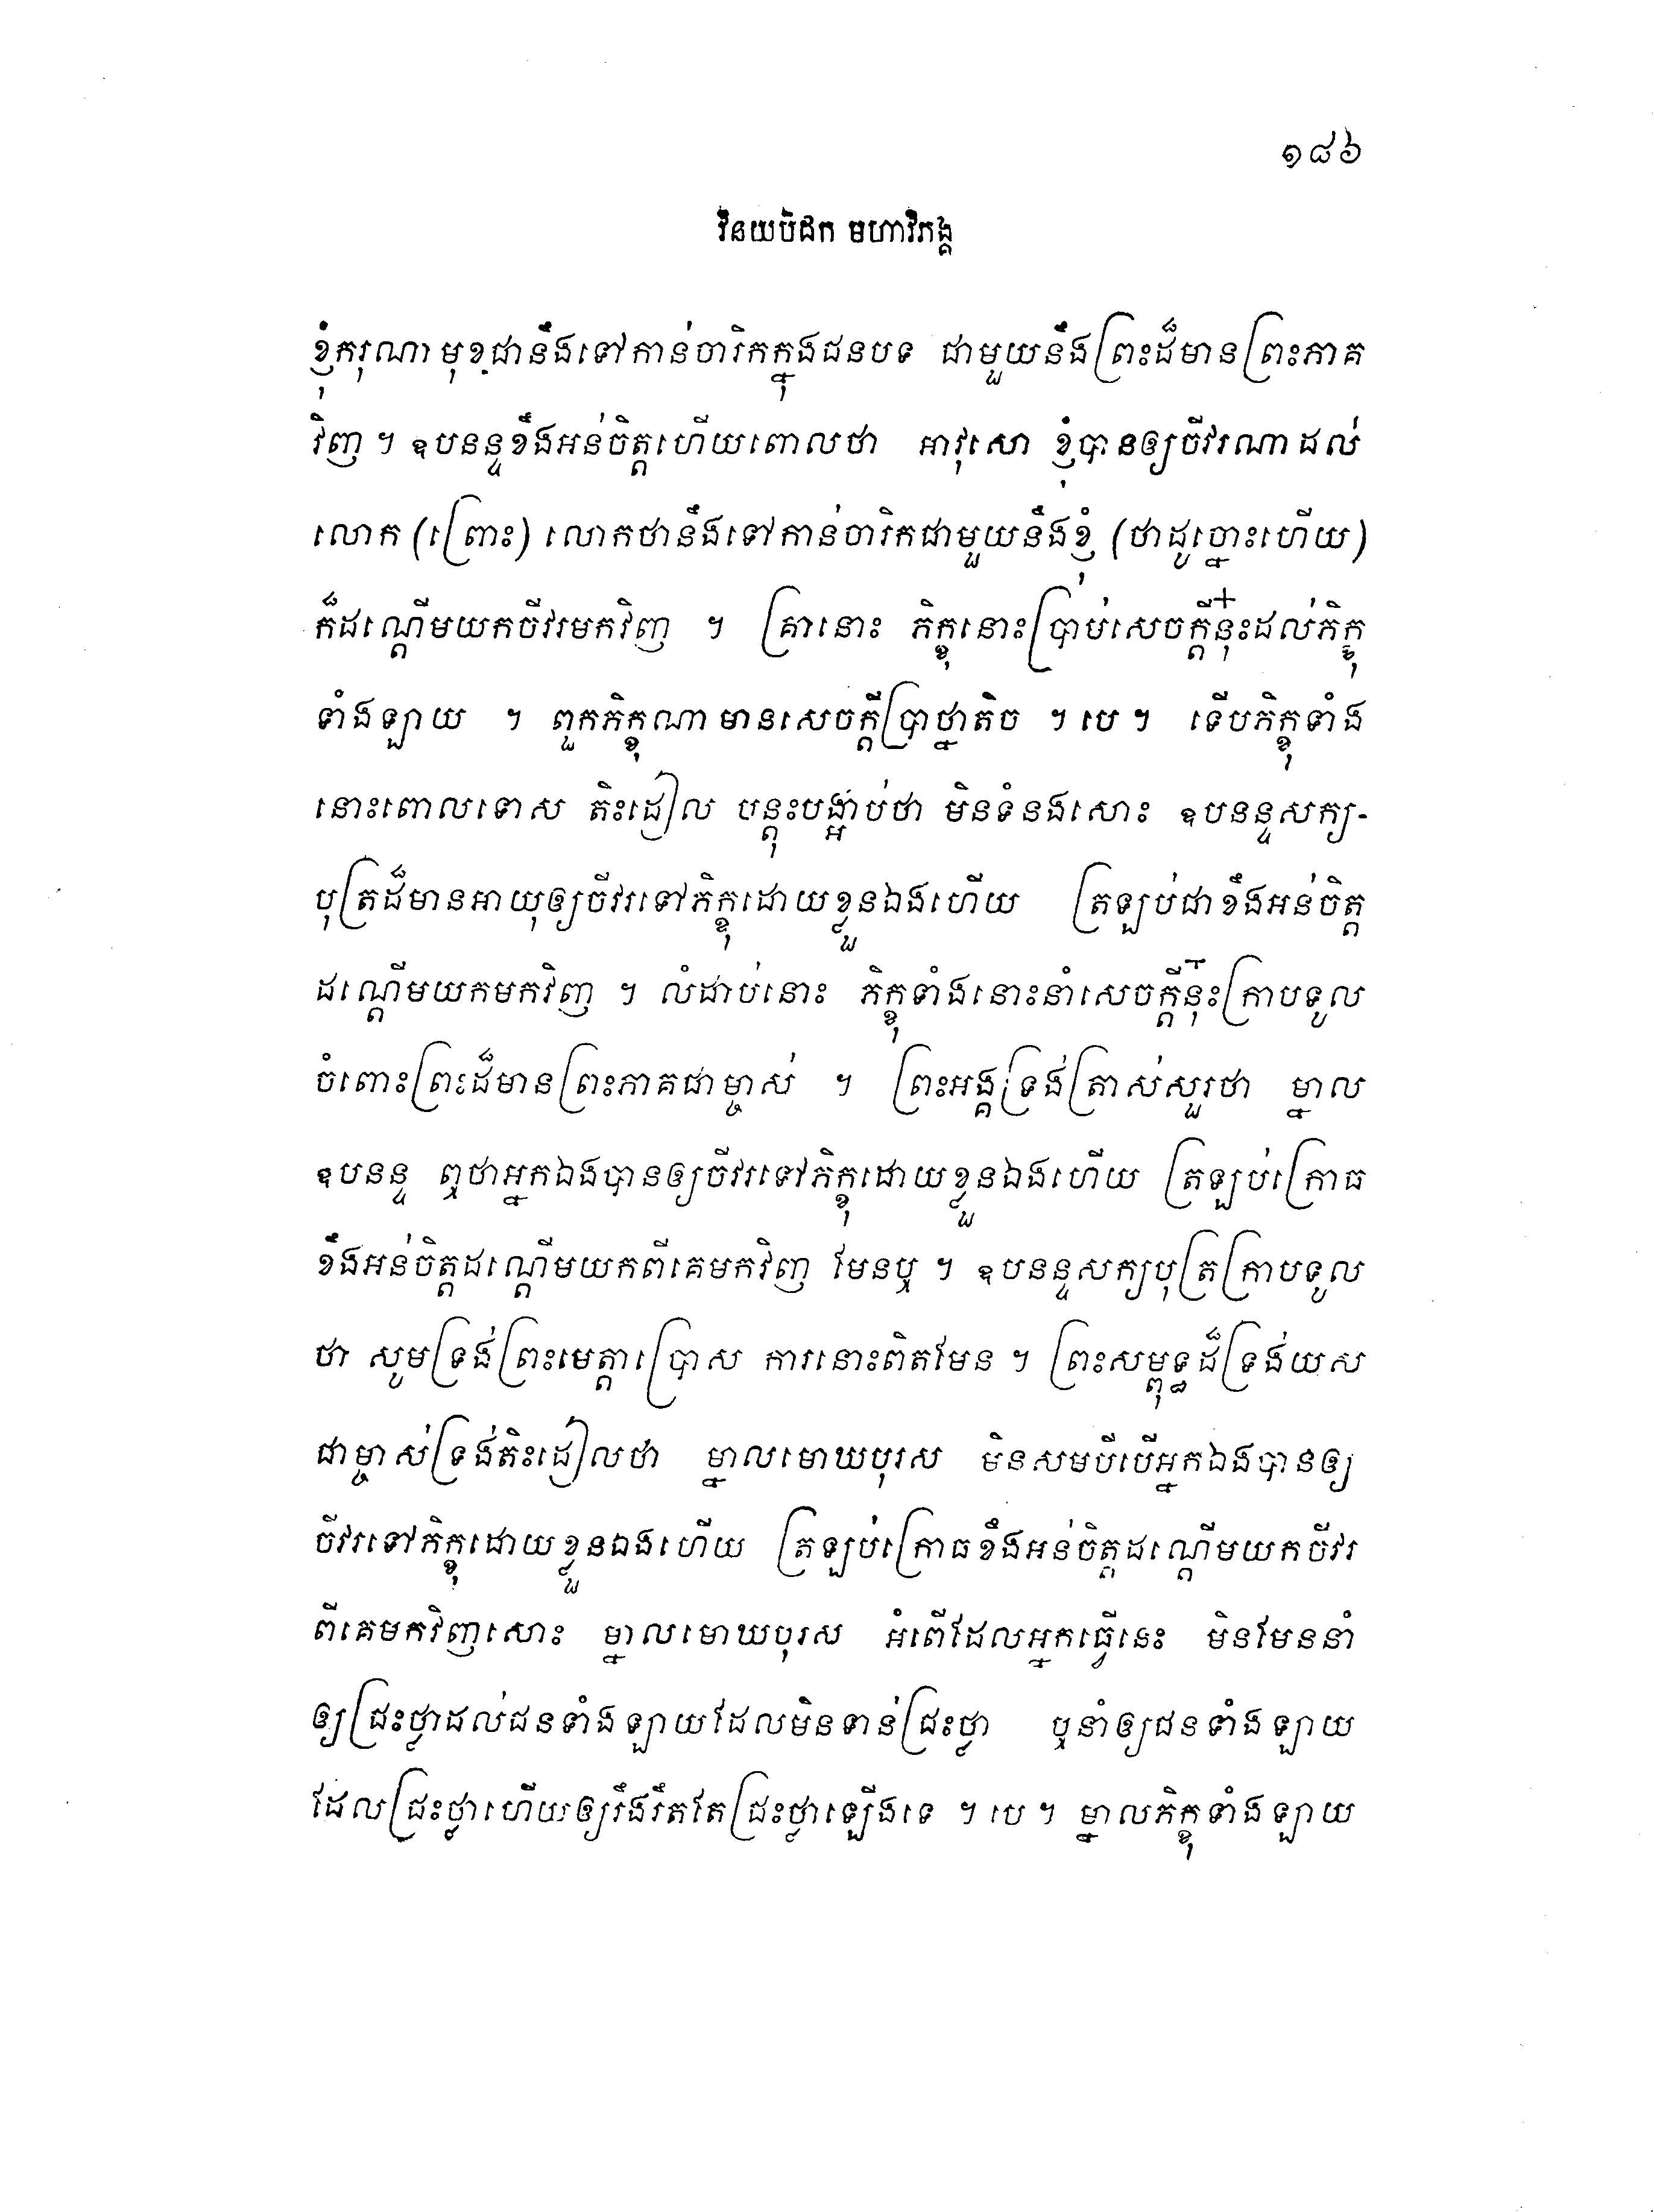 ១៨៦
វិនយបិដក មហាវិភង្គ
ខ្ញុំករុណា មុខជានឹងទៅកាន់ចារិកក្នុងជនបទ ជាមួយនឹងព្រះដ៏មានព្រះភាគ
វិញ ។ ឧបនន្ទខឹងអន់ចិត្តហើយពោលថា អាវុសោ ខ្ញុំបានឲ្យចីវរណាដល់
លោក (ព្រោះ) លោកថានឹងទៅកាន់ចារិកជាមួយនឹងខ្ញុំ (ថាដូច្នោះហើយ)
ក៏ដណ្តើមយកចីវរមកវិញ ។ គ្រានោះ ភិក្ខុនោះប្រាប់សេចក្តីនុ៎ះដល់ភិក្ខុ
ទាំងឡាយ ។ ពួកភិក្ខុណា មានសេចក្តីប្រាថ្នាតិច ។ បេ ។ ទើបភិក្ខុទាំង
នោះពោលទោស តិះដៀល បន្តុះបង្អាប់ថា មិនទំនងសោះ ឧបនន្ទសក្យ-
បុត្រដ៏មានអាយុឲ្យចីវរទៅភិក្ខុដោយខ្លួនឯងហើយ ត្រឡប់ជាខឹងអន់ចិត្ត
ដណ្តើមយកមកវិញ ។ លំដាប់នោះ ភិក្ខុទាំងនោះនាំសេចក្តីនុ៎ះក្រាបទូល
ចំពោះព្រះដ៏មានព្រះភាគជាម្ចាស់ ។ ព្រះអង្គទ្រង់ត្រាស់សួរថា ម្នាល
ឧបនន្ទ ឮថាអ្នកឯងបានឲ្យចីវរទៅភិក្ខុដោយខ្លួនឯងហើយ ត្រឡប់ក្រោធ
ខឹងអន់ចិត្តដណ្តើមយកពីគេមកវិញ មែនឬ ។ ឧបនន្ទសក្យបុត្រក្រាបទូល
ថា សូមទ្រង់ព្រះមេត្តាប្រោស ការនោះពិតមែន ។ ព្រះសម្ពុទ្ធដ៏ទ្រង់យស
ជាម្ចាស់ទ្រង់តិះដៀលថា ម្នាលមោឃបុរស មិនសមបីបើអ្នកឯងបានឲ្យ
ចីវរទៅភិក្ខុដោយខ្លួនឯងហើយ ត្រឡប់ក្រោធខឹងអន់ចិត្តដណ្តើមយកចីវរ
ពីគេមកវិញសោះ ម្នាលមោឃបុរស អំពើដែលអ្នកធ្វើនេះ មិនមែននាំ
ឲ្យជ្រះថ្លាដល់ជនទាំងឡាយដែលមិនទាន់ជ្រះថ្លា ឬនាំឲ្យជនទាំងឡាយ
ដែលជ្រះថ្លាហើយឲ្យរឹងរឹតតែជ្រះថ្លាឡើងទេ ។ បេ ។ ម្នាលភិក្ខុទាំងឡាយ